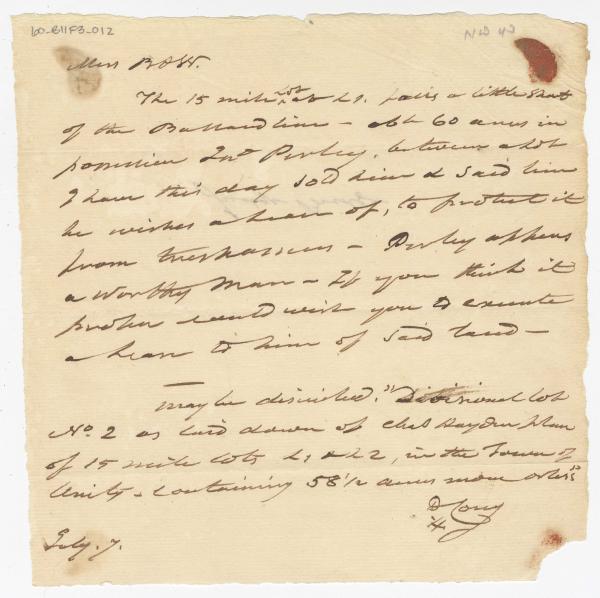 60-B11F3-012
ND 43
Mess B & W.
The 15 mile lot at L 1. falls a little Short
of the Ballard line – abt 60 acres in
possession Jnº Perley, between a lot
I have this day Sold him & Said line
he wishes a lease of, to protect it
from trespassers – Perley appears
a worthy Man – If you think it
proper would wish you to execute
a lease to him of Said land –
may be discribed, "Divisional lot
Nº 2 as laid down of Chs Hayden plan
of 15 mile lots L 1 & L 2, in the Town of
Unity – Containing 58 1/2 acres more or less"
D Cony
July. 7.